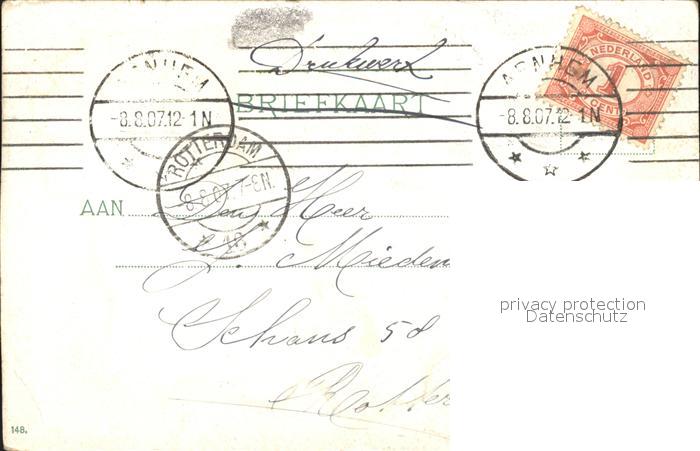 Drukwerk
NEDERLAND
1
CENT
ARNHEM
-8.8.07.12-1N
ARNHEM
-8.8.07.12-1N
BRIEFKAART
ROTTERDAM
8-8.07. 7-8N.
AAN Den Heer
Mieden
Schans 58
Rotter
privacy protection
Datenschutz
148.